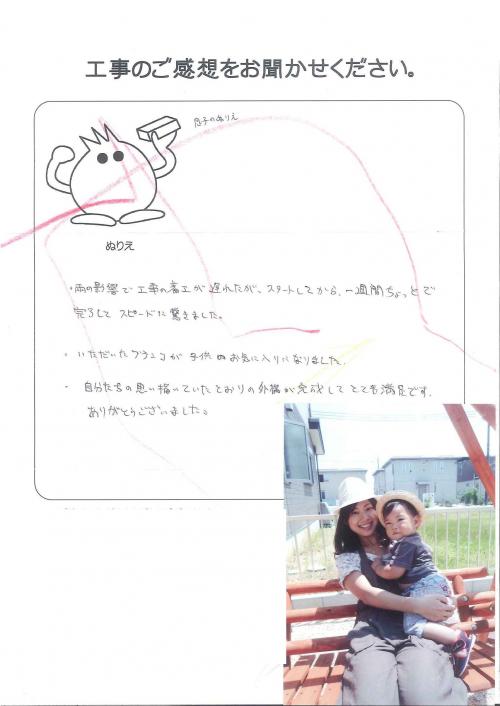 工事のご感想をお聞かせください。
息子のぬりえ
ぬりえ
・雨の影響で工事の着工が遅れたが、スタートしてから、一週間ちょっとで
完了して スピードに驚きました。
・いただいたブランコが子供のお気に入りになりました。
・自分たちの思い描いていたとおりの外構が完成して とても満足です。
ありがとうございました。